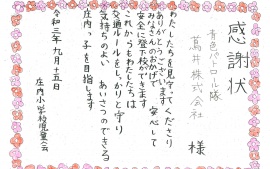 感謝状
青色パトロール隊
葛井株式会社 様
わたしたちを見守ってくださり
ありがとうございます。
みなさんのおかげで、安心して
安全に登下校ができます。
これからもわたしたちは
交通ルールをしっかりと守り
気持ちのよい あいさつのできる
庄内っ子を目指します。
令和三年九月十五日
庄内小学校児童会